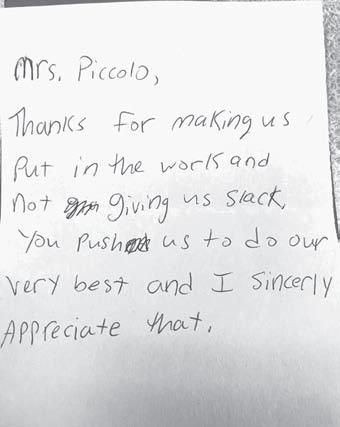 Mrs. Piccolo,
Thanks for making us
Put in the work and
Not giving us slack,
You Push us to do our
very best and I sincerly
Appreciate that.